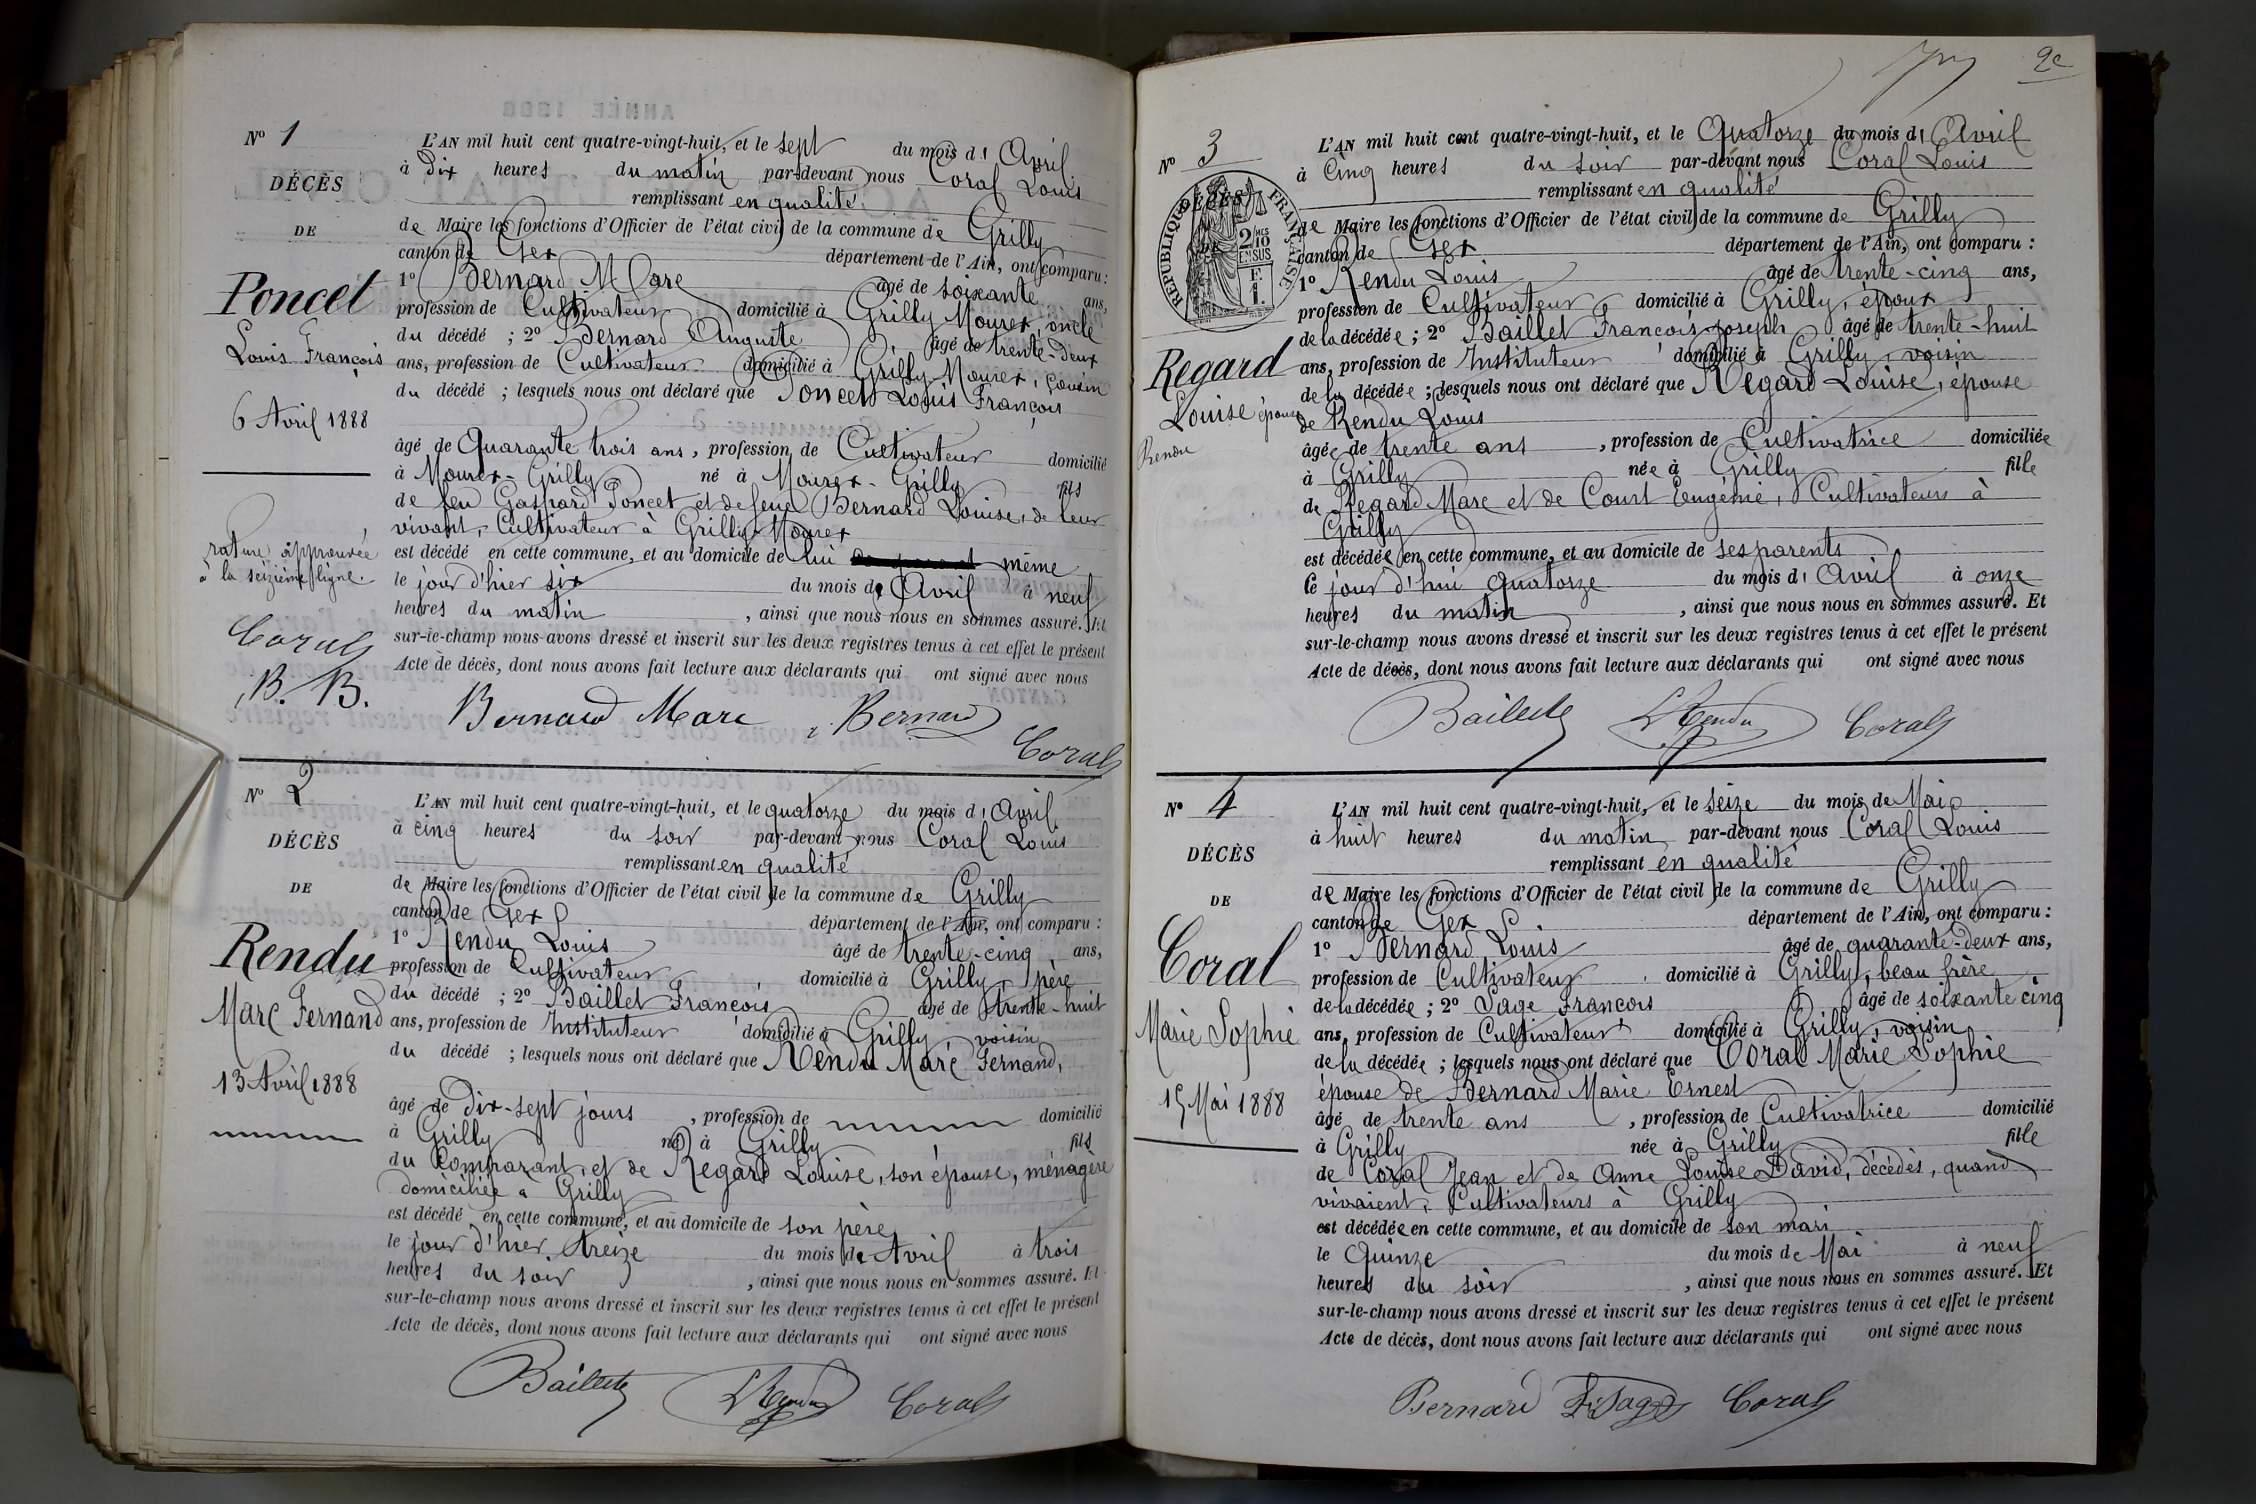 Nº 1
DÉCÈS
DE
Poncet
Louis François
6 Avril 1888
rature approuvée
à la seizième ligne.
Coral
B. B.
L'AN mil huit cent quatre-vingt-huit, et le sept du mois d' Avril
à Dix heures du matin par-devant nous Coral Louis
remplissant en qualité
de Maire les fonctions d'Officier de l'état civil de la commune de Grilly
canton de Gex département de l'Ain, ont comparu :
1º Bernard Marc âgé de soixante ans,
profession de Cultivateur domicilié à Grilly Mourex, oncle
du décédé ; 2º Bernard Auguste âgé de trente-deux
ans, profession de Cultivateur domicilié à Grilly-Mourex, cousin
du décédé ; lesquels nous ont déclaré que Poncet Louis François
âgé de Quarante trois ans, profession de Cultivateur domicilié
à Mourex-Grilly né à Mourex-Grilly fils
de feu Gaspard Poncet et de feue Bernard Louise, de leur
vivant, Cultivateur à Grilly-Mourex
est décédé en cette commune, et au domicile de lui même
le jour d'hier six du mois de Avril à neuf
heures du matin, ainsi que nous nous en sommes assuré. Et
sur-le-champ nous avons dressé et inscrit sur les deux registres tenus à cet effet le présent
Acte de décès, dont nous avons fait lecture aux déclarants qui ont signé avec nous
Bernard Marc Bernard Coral
Nº 2
DÉCÈS
DE
Rendu
Marc Fernand
13 Avril 1888
L'AN mil huit cent quatre-vingt-huit, et le quatorze du mois d' Avril
à cinq heures du soir par-devant nous Coral Louis
remplissant en qualité
de Maire les fonctions d'Officier de l'état civil de la commune de Grilly
canton de Gex département de l'Ain, ont comparu :
1º Rendu Louis âgé de trente-cinq ans,
profession de Cultivateur domicilié à Grilly, père
du décédé ; 2º Baillet François âgé de trente-huit
ans, profession de Instituteur domicilié à Grilly voisin
du décédé ; lesquels nous ont déclaré que Rendu Marc Fernand,
âgé de Dix-sept jours, profession de domicilié
à Grilly né à Grilly fils
du Comparant, et de Regard Louise, son épouse, ménagère
domiciliée a Grilly
est décédé en cette commune, et au domicile de son père
le jour d'hier treize du mois de Avril à trois
heures du soir, ainsi que nous nous en sommes assuré. Et
sur-le-champ nous avons dressé et inscrit sur les deux registres tenus à cet effet le présent
Acte de décès, dont nous avons fait lecture aux déclarants qui ont signé avec nous
Baillet L Rendu Coral
2e
Nº 3
DÉCÈS
RÉPUBLIQUE FRANÇAISE
2/10 EN SUS
F.
1.
Regard
Louise épouse
Rendu
L'AN mil huit cent quatre-vingt-huit, et le Quatorze du mois d' Avril
à Cinq heures du soir par-devant nous Coral Louis
remplissant en qualité
de Maire les fonctions d'Officier de l'état civil de la commune de Grilly
canton de Gex département de l'Ain, ont comparu :
1º Rendu Louis âgé de trente-cinq ans,
profession de Cultivateur domicilié à Grilly, époux
de la décédée ; 2º Baillet François-Joseph âgé de trente-huit
ans, profession de Instituteur domicilié à Grilly, voisin
de la décédée ; lesquels nous ont déclaré que Regard Louise, épouse
de Rendu Louis
âgée de trente ans, profession de Cultivatrice domiciliée
à Grilly née à Grilly fille
de Regard Marc et de Court Eugénie, Cultivateurs à
Grilly
est décédée en cette commune, et au domicile de ses parents
le jour d'hui quatorze du mois d' Avril à onze
heures du matin, ainsi que nous nous en sommes assuré. Et
sur-le-champ nous avons dressé et inscrit sur les deux registres tenus à cet effet le présent
Acte de décès, dont nous avons fait lecture aux déclarants qui ont signé avec nous
Baillet L Rendu Coral
Nº 4
DÉCÈS
DE
Coral
Marie Sophie
15 Mai 1888
L'AN mil huit cent quatre-vingt-huit, et le seize du mois de Mai
à huit heures du matin par-devant nous Coral Louis
remplissant en qualité
de Maire les fonctions d'Officier de l'état civil de la commune de Grilly
canton de Gex département de l'Ain, ont comparu :
1º Bernard Louis âgé de quarante-deux ans,
profession de Cultivateur domicilié à Grilly, beau frère
de la décédée ; 2º Sage François âgé de soixante cinq
ans, profession de Cultivateur domicilié à Grilly, voisin
de la décédée ; lesquels nous ont déclaré que Coral Marie Sophie
épouse de Bernard Marie Ernest
âgé de trente ans, profession de Cultivatrice domicilié
à Grilly née à Grilly fille
de Coral Jean et de Anne Louise David, décédés, quand
vivaient, Cultivateurs à Grilly
est décédée en cette commune, et au domicile de son mari
le Quinze du mois de Mai à neuf
heures du soir, ainsi que nous nous en sommes assuré. Et
sur-le-champ nous avons dressé et inscrit sur les deux registres tenus à cet effet le présent
Acte de décès, dont nous avons fait lecture aux déclarants qui ont signé avec nous
Bernard F. Sage Coral